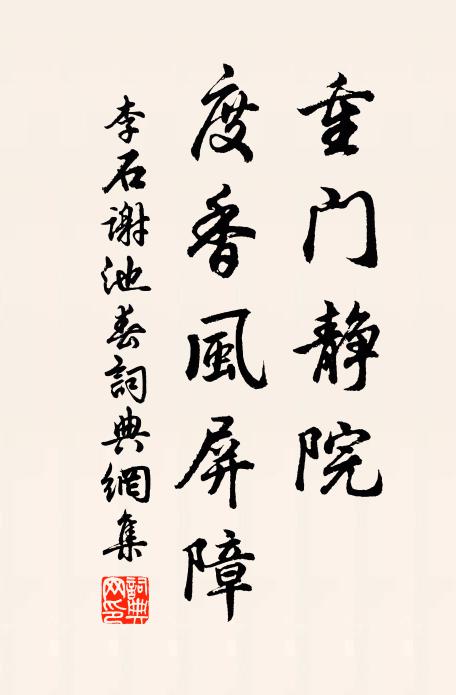 重门静院
度香風屏障
李石謝池春詞典網集
詞典網印